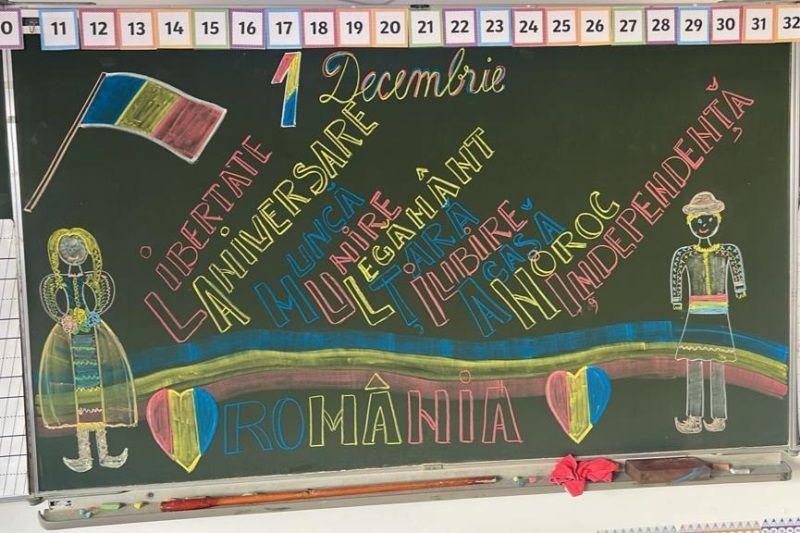 11 12 13 14 15 16 17 18 19 20 21 22 23 24 25 26 27 28 29 30 31 32
1 Decembrie
LIBERTATE
ANIVERSARE
MUNCĂ
UNIRE
LEGĂMÂNT
ȚARĂ
IUBIRE
ACASĂ
NOROC
INDEPENDENȚĂ
ROMÂNIA